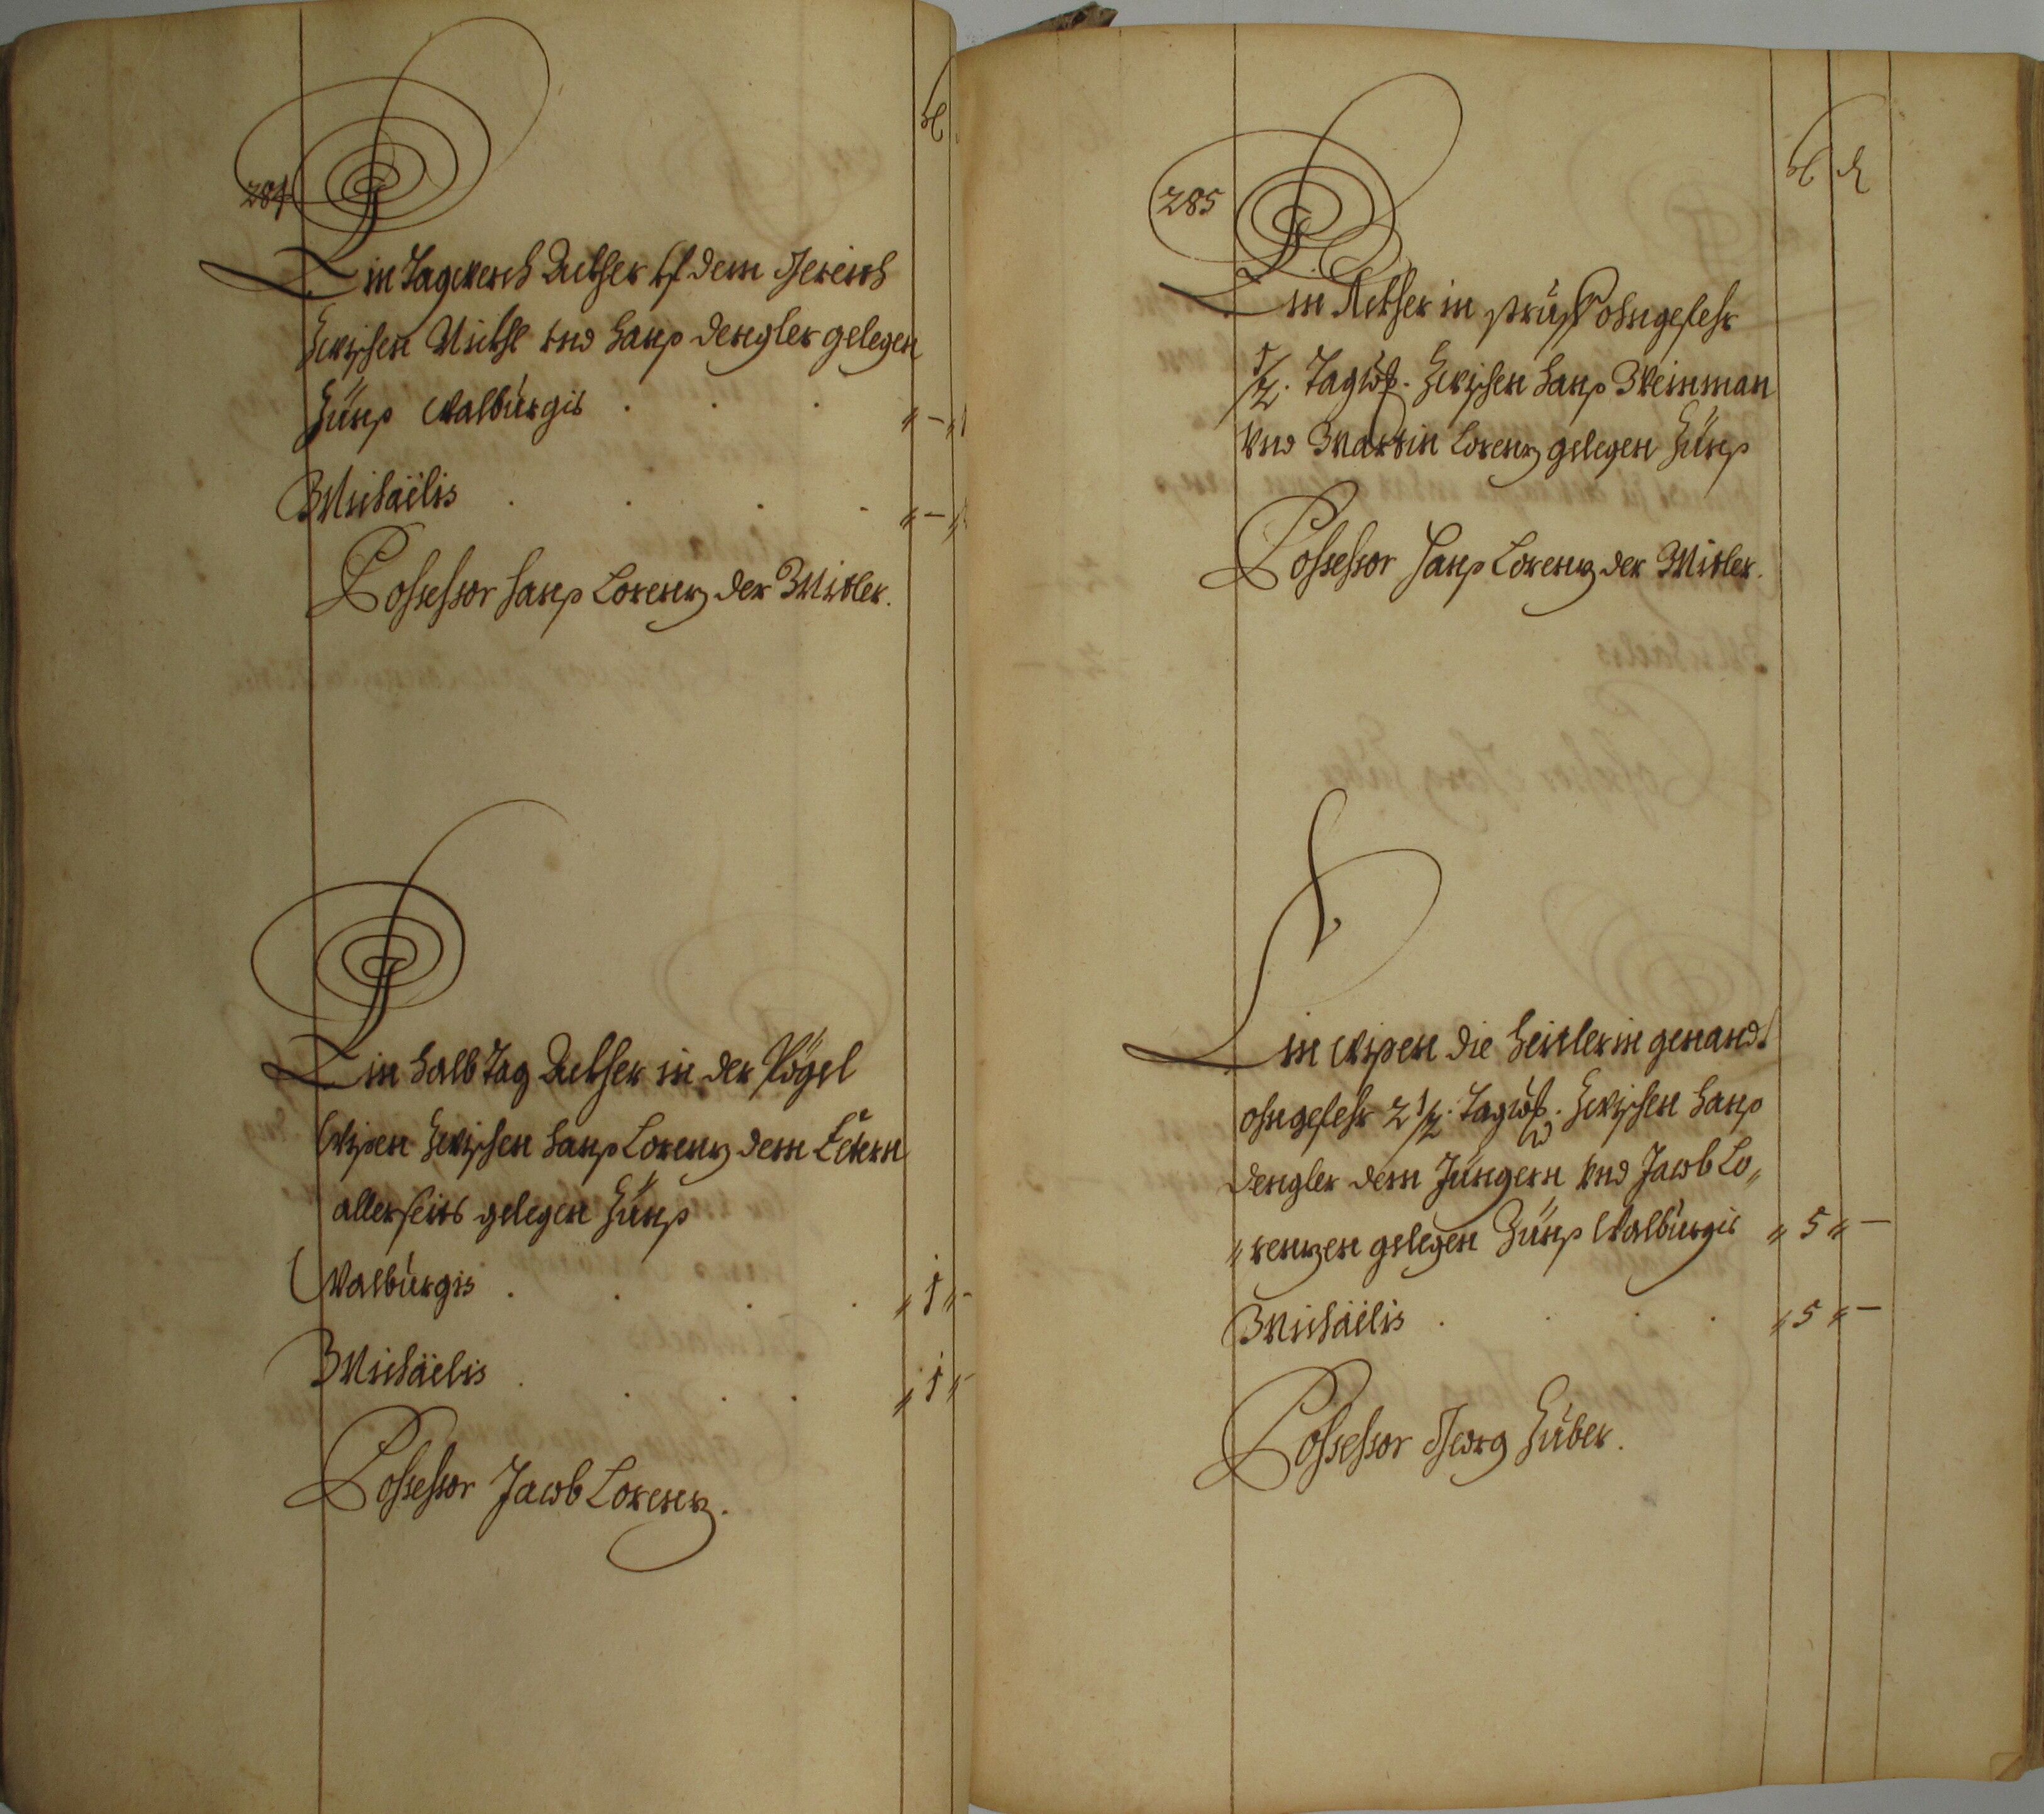 284
Ein Tagwerch Ackher vf dem Gereith
Zwischen Michl vnd Hanß Dengler gelegen
Zünß Walburgis . . . „ – „
Michaëlis . . . . „ – „
Possessor Hanß Lorenz der Mitler.
Ein halb Tag Ackher in der Vögel
Wißen Zwischen Hanß Lorenz dem
allerseits gelegen Zünß
Walburgis . . . . „ 1 „ –
Michaëlis . . . . „ 1 „ –
Possessor Jacob Lorenz.
285
Ein Ackher in ohngefehr
1/2. Tagw. Zwischen Hanß Weinman
Vnd Martin Lorenz gelegen Zünß
Possessor Hanß Lorenz der Mitler.
Ein Wißen die Heitlerin genand.
ohngefehr 2 1/2. Tagw. Zwischen Hanß
Dengler dem Jüngern Vnd Jacob Lo„
„renzen gelegen Zünß Walburgis „ 5 „ –
Michaëlis . . . „ 5 „ –
Possessor Georg Huber.